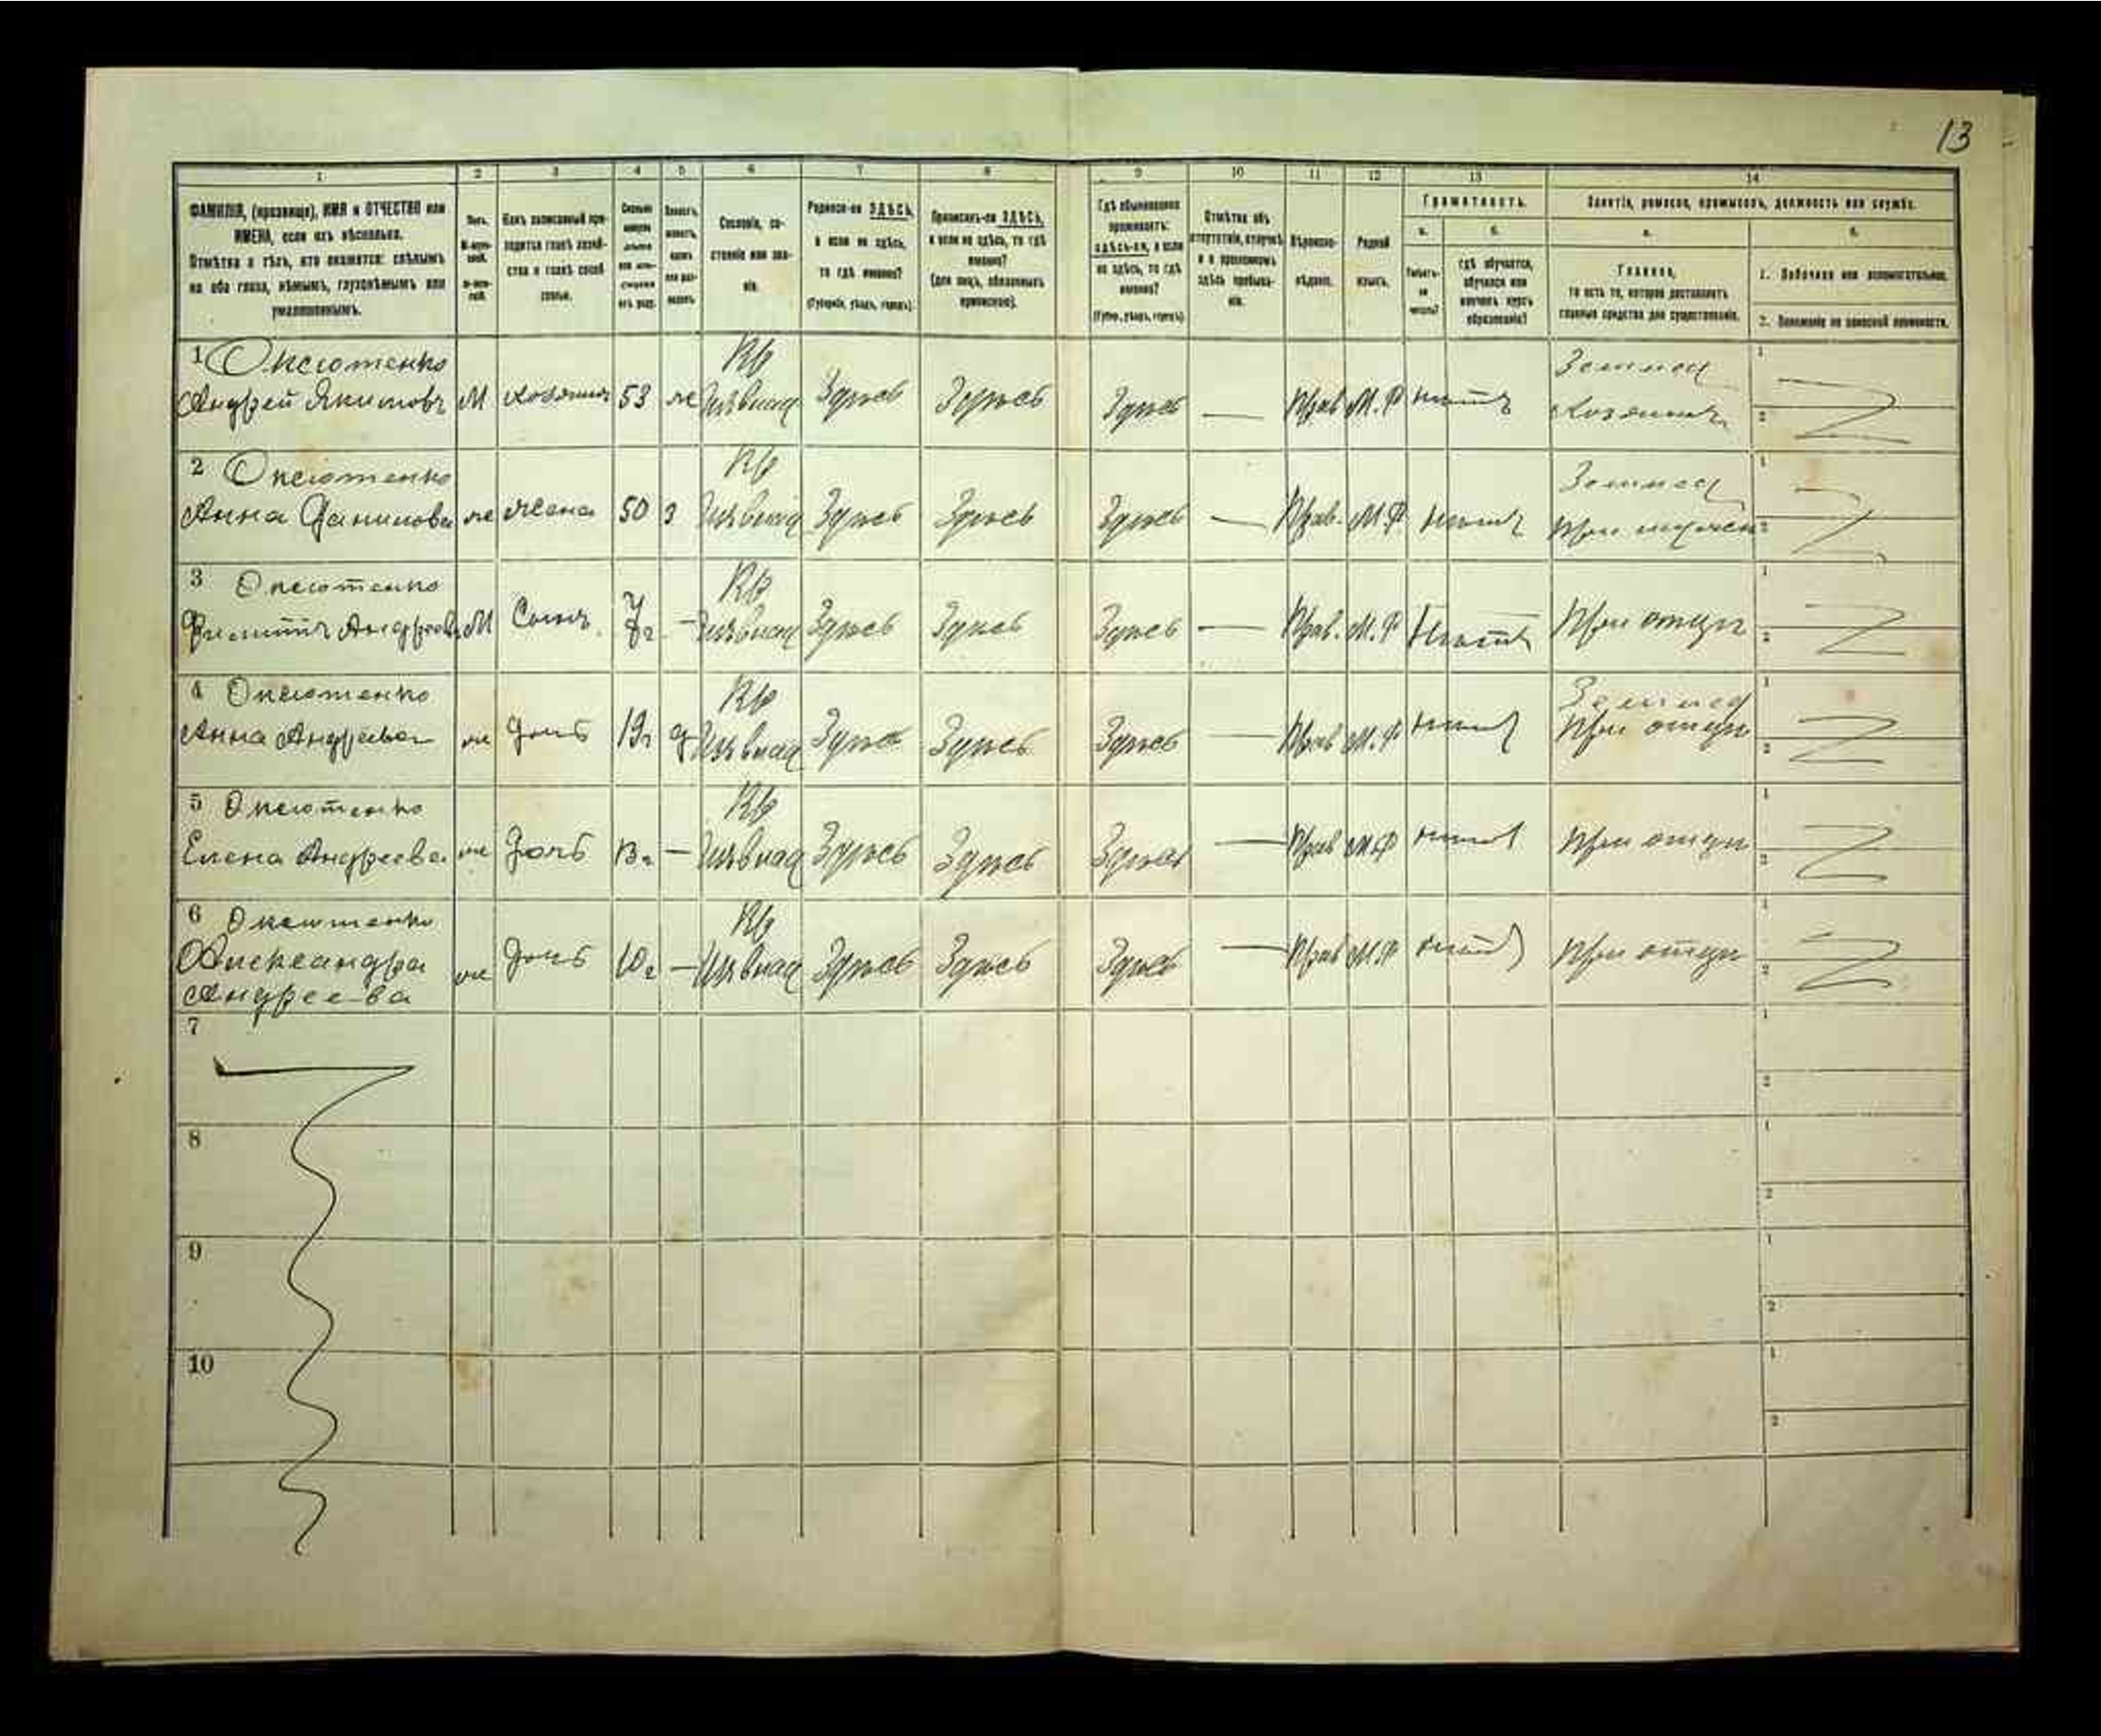 13
1 2 3 4 5 6 7 8 9 10 11 12 13 14
ФАМИЛІЯ, (прозвище), ИМЯ и ОТЧЕСТВО или
ИМЕНА, если ихъ нѣсколько.
Отмѣтка о тѣхъ, кто окажется: слѣпымъ
на оба глаза, нѣмымъ, глухонѣмымъ или
умалишеннымъ.
Полъ.
Какъ записанный при-
ходится главѣ хозяй-
ства и главѣ своей
семьи.
Сословіе, со-
стояніе или зва-
ніе.
Родился-ли ЗДѢСЬ,
а если не здѣсь,
то гдѣ именно?
(Губернія, уѣздъ, городъ).
Приписанъ-ли ЗДѢСЬ,
а если не здѣсь, то гдѣ
именно?
(для лицъ, обязанныхъ
припискою).
Гдѣ обыкновенно
проживаетъ:
здѣсь-ли, а если
не здѣсь, то гдѣ
именно?
(Губер., уѣздъ, городъ).
Отмѣтка объ
отсутствіи, отлучкѣ
и о временномъ
здѣсь пребыва-
ніи.
Вѣроиспо-
вѣданіе.
Родной
языкъ.
Грамотность.
а. б.
Умѣетъ-
ли
читать?
гдѣ обучается,
обучался или
кончилъ курсъ
образованія?
Занятіе, ремесло, промыселъ, должность или служба.
а. б.
Главное,
то есть то, которое доставляетъ
главныя средства для существованія.
1. Побочное или вспомогательное.
2. Положеніе по воинской повинности.
1 Оксютенко
Андрей Якимовъ М хозяинъ 53 Кр Здѣсь Здѣсь Здѣсь — Прав М.Р нѣтъ Землед
Хозяинъ 1 2
2 Оксютенко
Анна Данилова ж жена 50 з Кр Здѣсь Здѣсь Здѣсь — Прав. М.Р нѣтъ Землед
При мужѣ 1 2
3 Оксютенко
Андреевъ М Сынъ — Кр Здѣсь Здѣсь Здѣсь — Прав. М.Р Нѣтъ При отцѣ 1 2
4 Оксютенко
Анна Андреева ж дочь 19 г д Кр Здѣсь Здѣсь Здѣсь — Прав М.Р нѣтъ Землед
При отцѣ 1 2
5 Оксютенко
Елена Андреева ж Дочь 13 г — Кр Здѣсь Здѣсь Здѣсь — Прав М.Р нѣтъ При отцѣ 1 2
6 Оксютенко
Александра
Андреева ж Дочь 10 г — Кр Здѣсь Здѣсь Здѣсь — Прав М.Р нѣтъ При отцѣ 1 2
7 1 2
8 1 2
9 1 2
10 1 2